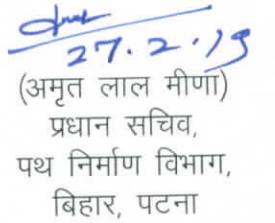 27.2.19
(अमृत लाल मीणा)
प्रधान सचिव,
पथ निर्माण विभाग,
बिहार, पटना